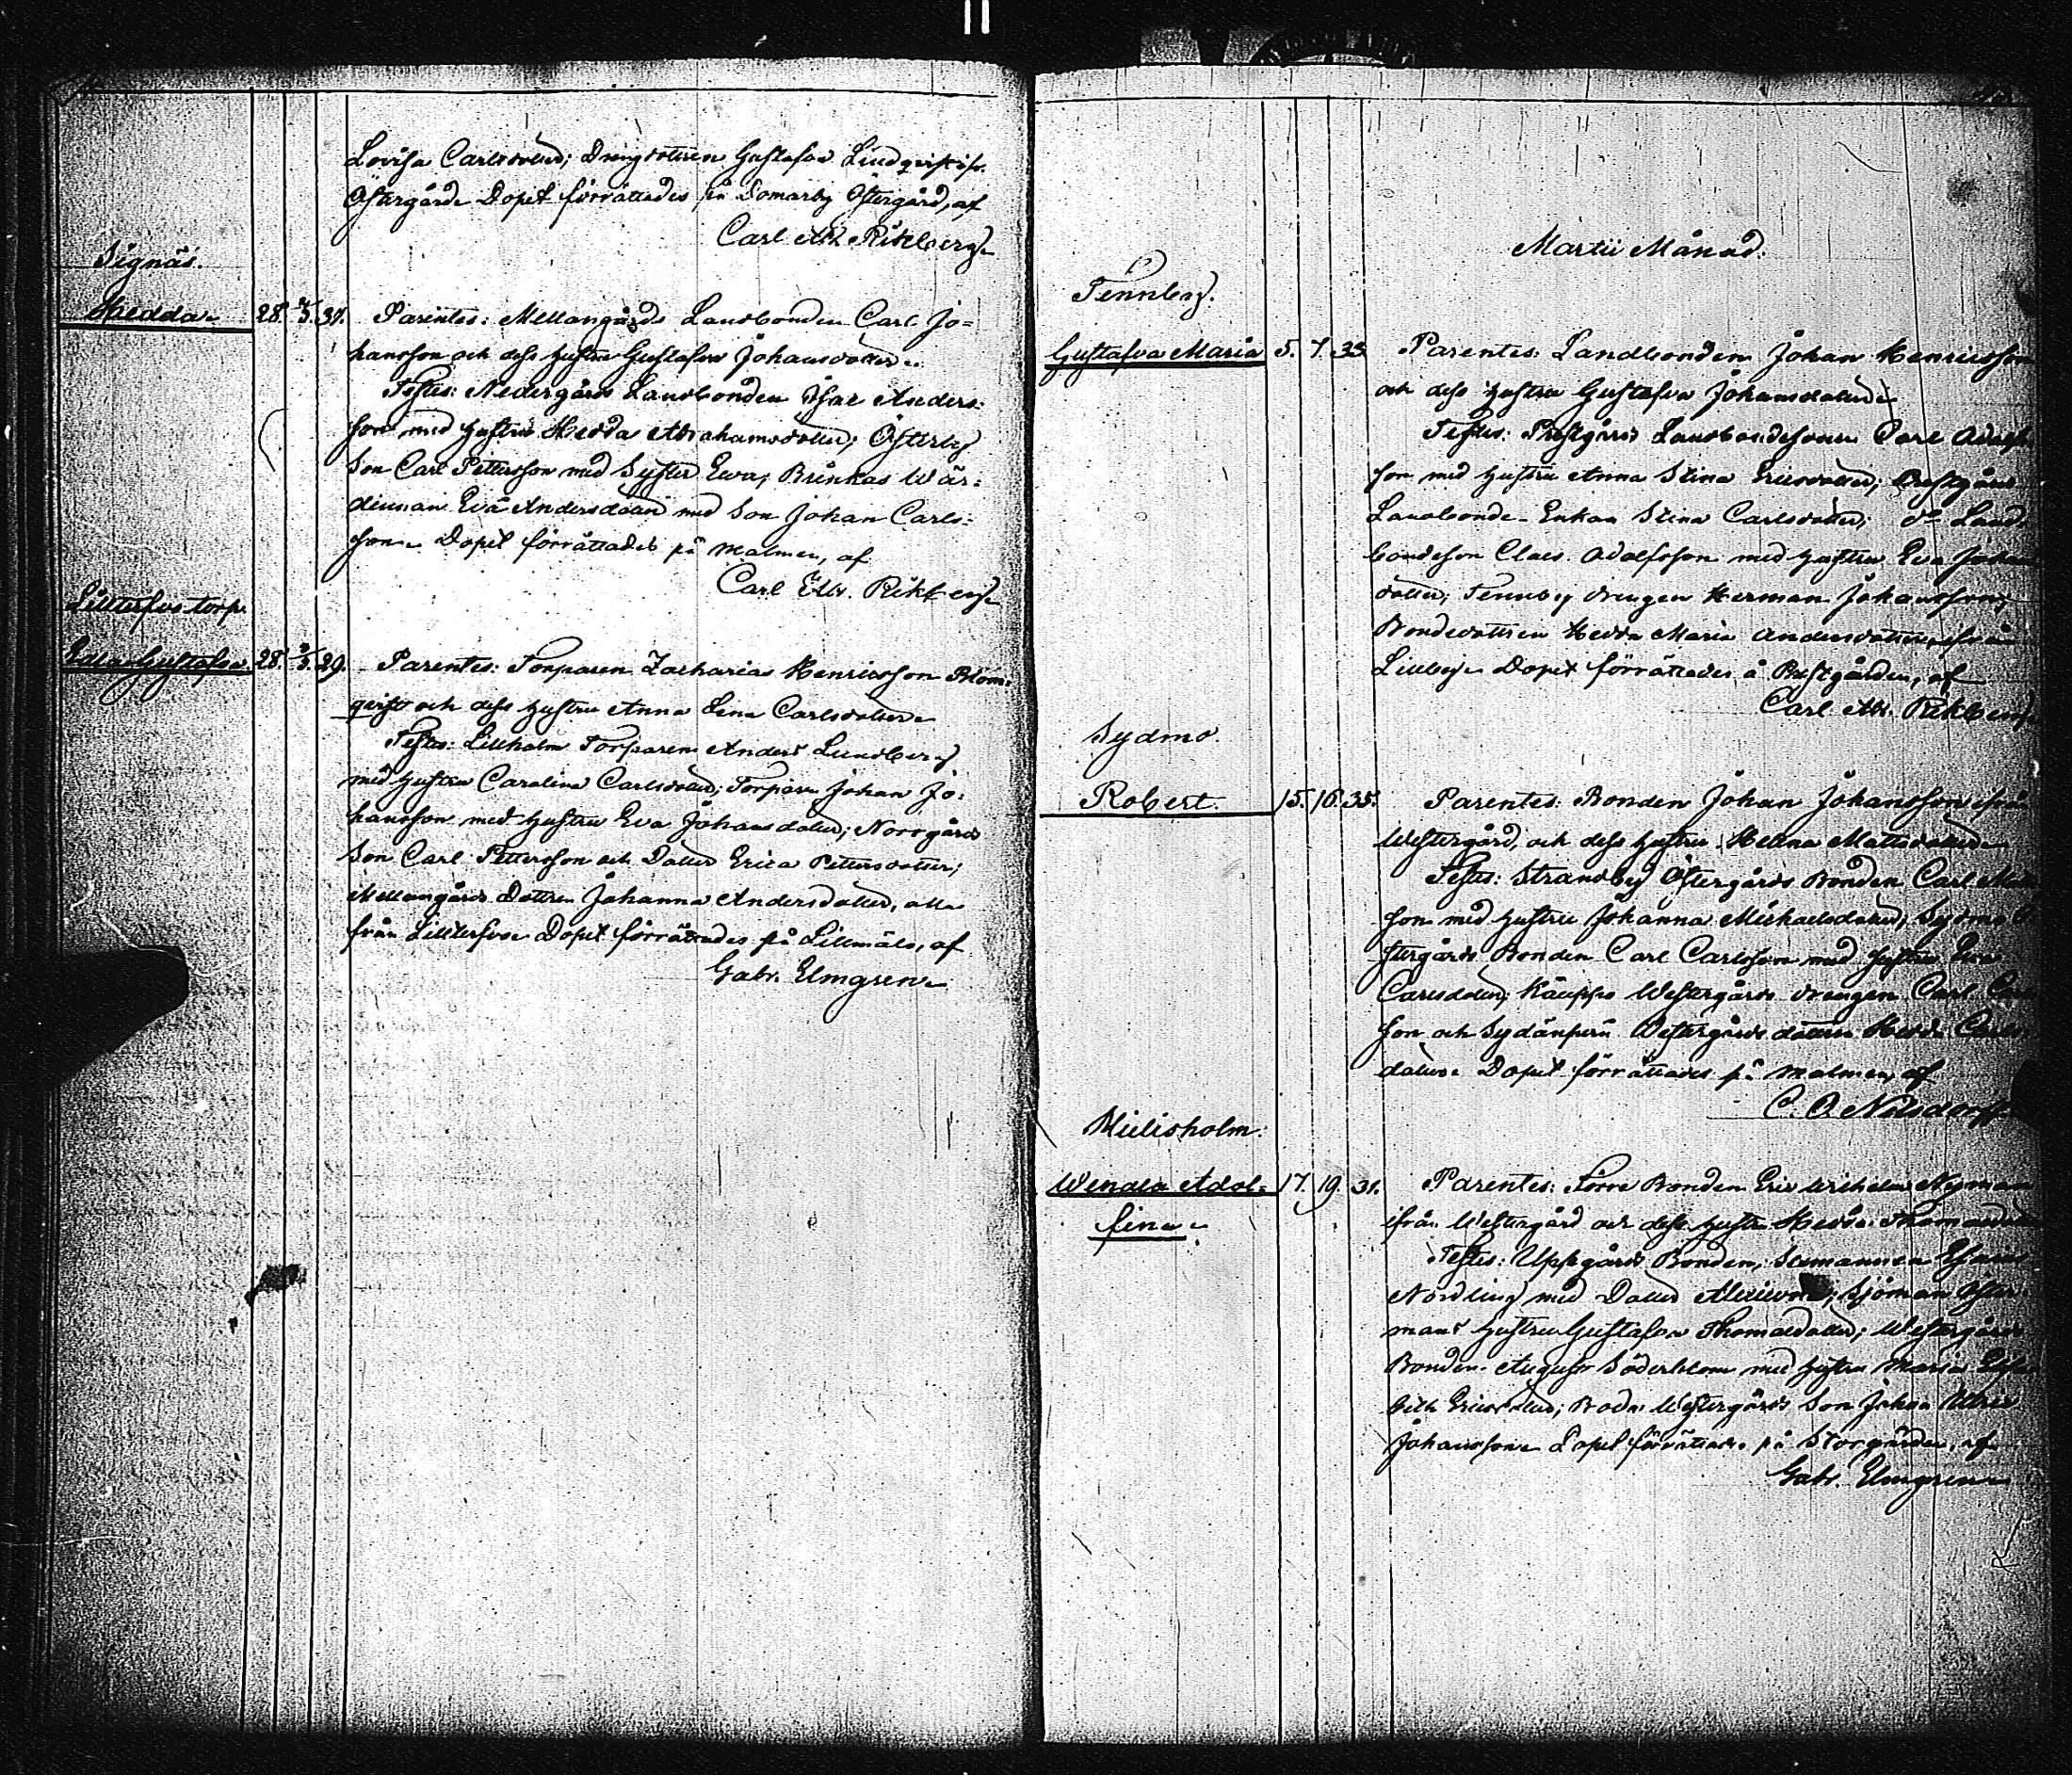 Lovisa Carlsdotter; Drengdottren Gustafva Lindqvist ifr.
Östergård. Dopet förrättades på Domarby Östergård, af
Carl Ab. Rikberg.
Signäs.
Hedda. 28. 2/3. 37. Parentes: Mellangårds Landbonden Carl Jo=
hansson och dess hustru Gustafva Johansdotter.
Testes: Nedergårds Landbonden Isac Anders=
son med hustru Hedda Abrahamsdotter; Österby
Son Carl Pettersson med Syster Ewa; Brinkas Wär=
dinnan Eva Andersdotter med Son Johan Carls=
son. Dopet förrättades på Malmen, af
Carl Ab. Rikberg.
Lillterfvo torp.
Gustafva. 28. 2/3. 29. Parentes: Torparen Zacharias Henriksson Blom=
qvist och dess hustru Anna Lena Carlsdotter.
Testes: Lillholm Torparen Anders Lundberg
med hustru Carolina Carlsdotter; Torparn Johan Jo=
hansson med hustru Eva Johansdotter; Norrgårds
Son Carl Pettersson och Dotter Erica Pettersdotter;
Mellangårds Dottren Johanna Andersdotter, alla
från Lillterfvo. Dopet förrättades på Lillmälo, af
Gabr. Elmgren.
Martii Månad.
Tennby.
Gustafva Maria 5. 7. 33. Parentes: Landbonden Johan Henricsson
och dess hustru Gustafva Johansdotter.
Testes: Prostgårds Landbondesonen Carl Adolfs
son med hustru Anna Stina Ericsdotter; Prostgårds
Landbonde-Enkan Stina Carlsdotter; do Land=
bondeson Claes Adolfsson med hustru Eva Johans
dotter; Tennby drengen Herman Johansson;
Bondedottren Hedda Maria Andersdotter, ifrån
Lilleby. Dopet förrättades å Prostgården, af
Carl Ab. Rikberg.
Sydmo.
Robert. 15. 16. 35. Parentes: Bonden Johan Johansson ifrån
Westergård, och dess hustru Helena Mattsdotter.
Testes: Strandby Östergårds Bonden Carl
son med hustru Johanna Michaelsdotter; Sydmo Ö
stergårds Bonden Carl Carlsson med hustru Eva
Carlsdotter; Käuppo Westergårds drengen Carl
son och Sydänperä Westergårds dottren Hedda Carls
dotter. Dopet förrättades på Malmen, af
C. O. Nelsdorff
Mielisholm.
Wendla Adol= 17. 19. 31. Parentes: Förre Bonden Eric Wilhelm Nyman
fina. ifrån Westergård och dess hustru Hedda Thomasdotter
Testes: Uppgårds Bonden,
Nordling med Dotter; Sjöman Öster=
mans hustru Gustafva Thomasdotter; Westergårds
Bonden August Söderblom med hustru Maria Elisa
beth Ericsdotter; Westergårds Son Johan Ulric
Johansson. Dopet förrättades på Storgården, af
Gabr. Elmgren